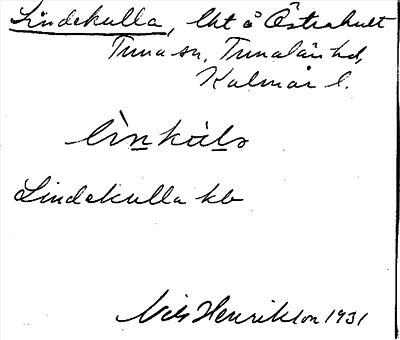 Lindekulla, lht å Östrahult
Tuna sn, Tunaläns hd,
Kalmar l.
lìnkúls
Lindekulla kb
Nils Henrikson 1931